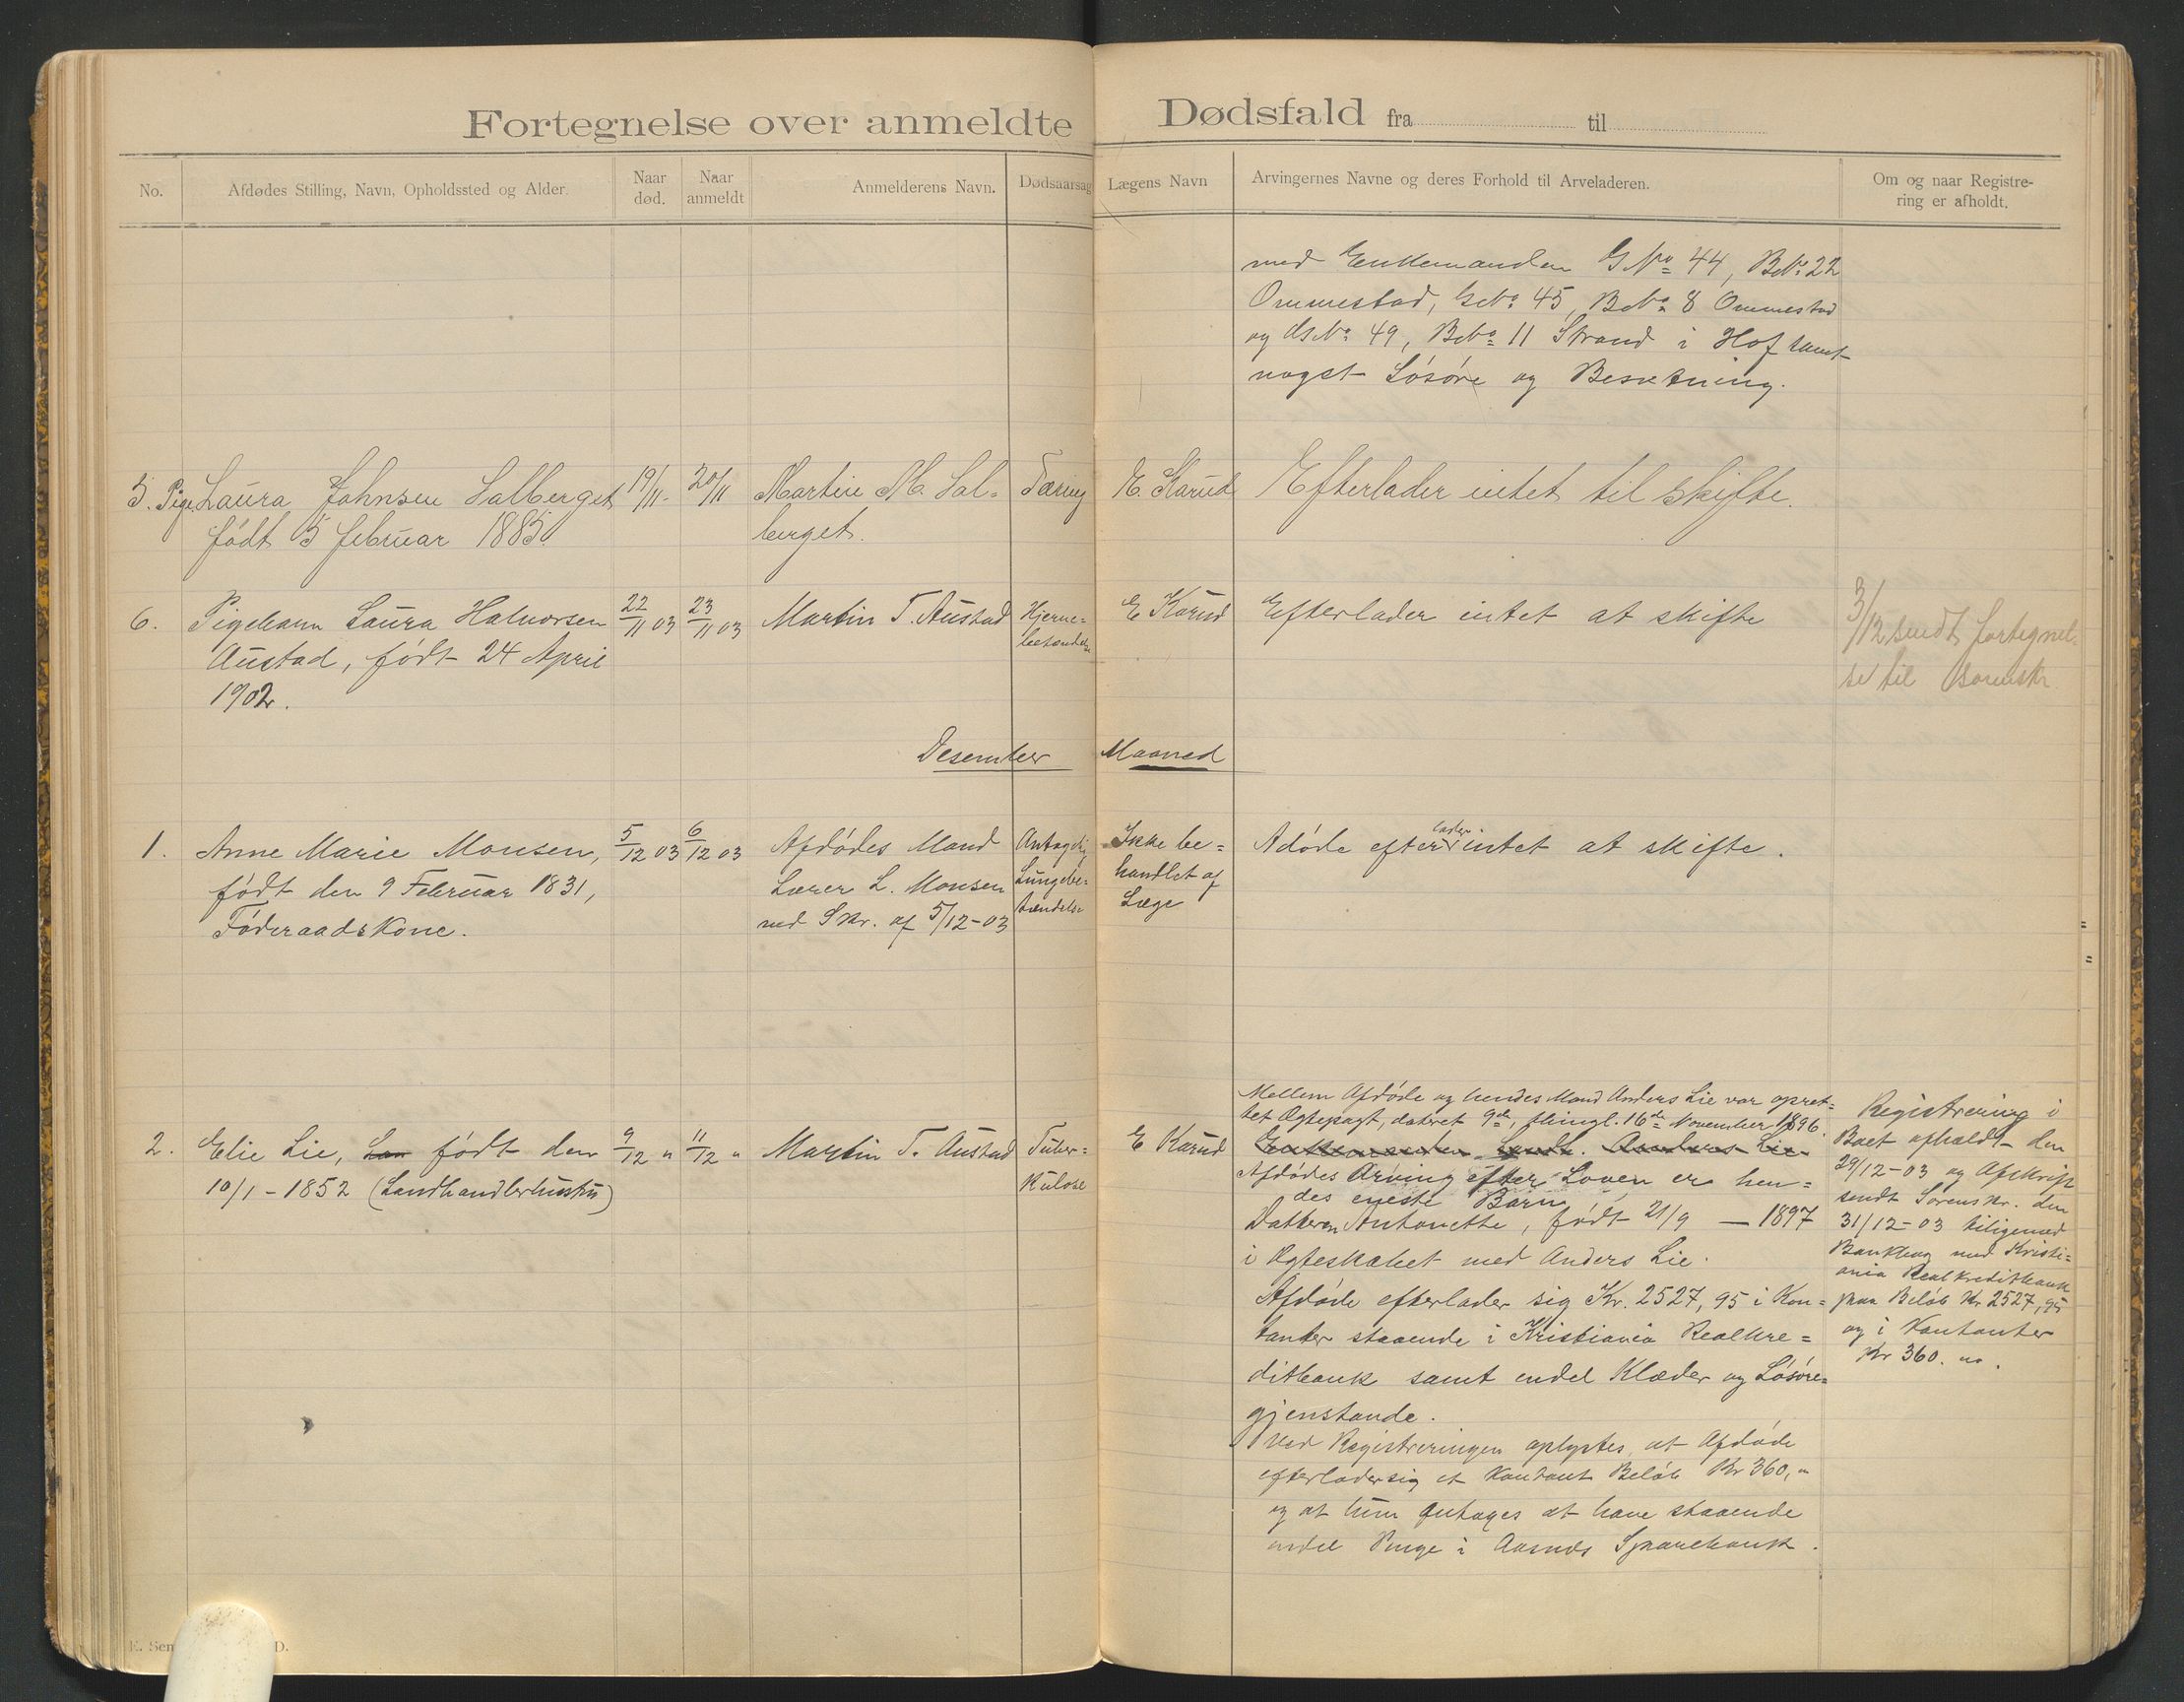 Fortegnelse over anmeldte Dødsfald fra til
No.
Afdødes Stilling, Navn, Opholdssted og Alder.
Naar
død.
Naar
anmeldt
Anmelderens Navn.
Dødsaarsag
Lægens Navn
Arvingernes Navne og deres Forhold til Arveladeren.
Om og naar Registre-
ring er afholdt.
med Enkemanden GNo 44, BNo 22
Ommestad, GNo 45, BNo 8 Ommestad
og GNo 49, BNo 11 Strand i Hof samt
noget Løsøre og Besetning.
5. Pige Laura Johnsen Salberget
født 5 februar 1885
19/11.
20/11
Martin M. Sal-
berget.
Tæring
E. Karud
Efterlader intet til skifte.
6.
Pigebarn Laura Halvorsen
Austad, født 24 April
1902.
22/11 03
23/11 03
Martin T. Austad
Hjerne-
betændelse
E Karud
Efterlader intet at skifte
3/12 sendt fortegnel-
se til Sorenskr
Desember Maaned
1.
Anne Marie Monsen,
født den 9 Februar 1831,
Føderaadskone.
5/12 03
6/12 03
Afdødes Mand
Lærer L. Monsen
ved Skr. af 5/12-03
Antagelig
Lungebe-
tændelse
Ikke be=
handlet af
Læge
Adøde efterlader intet at skifte.
2.
Elie Lie, født den
10/1 - 1852 (Landhandlerhustru)
9/12 "
11/12 "
Martin T. Austad
Tuber=
kulose
E Karud
Mellem Afdøde og hendes Mand Anders Lie var opret=
tet Ægtepagt, dateret 9de, thingl. 16de November 1896.
Enkemanden Landh. Anders Lie
Afdødes Arving efter Loven er hen=
des eneste Barn
Datteren Antonette, født 21/9 — 1897
i Ægteskabet med Anders Lie.
Afdøde efterlader sig Kr. 2527,95 i Kon=
tanter staaende i Kristiania Realkre=
ditbank samt endel Klæder og Løsøre=
gjenstande.
Ved Registreringen oplystes, at Afdøde
efterlader sig et Kontant Beløb Kr 360,"
og at hun antages at have staaende
endel Penge i Aasnes Sparebank.
Registrering i
Boet afholdt den
29/12-03 og Afskrift
sendt Sorenskr. den
31/12-03 tilligemed
Bankbog med Kristi=
ania Realkreditbank
paa Beløb Kr 2527,95
og i Kontanter
Kr 360.